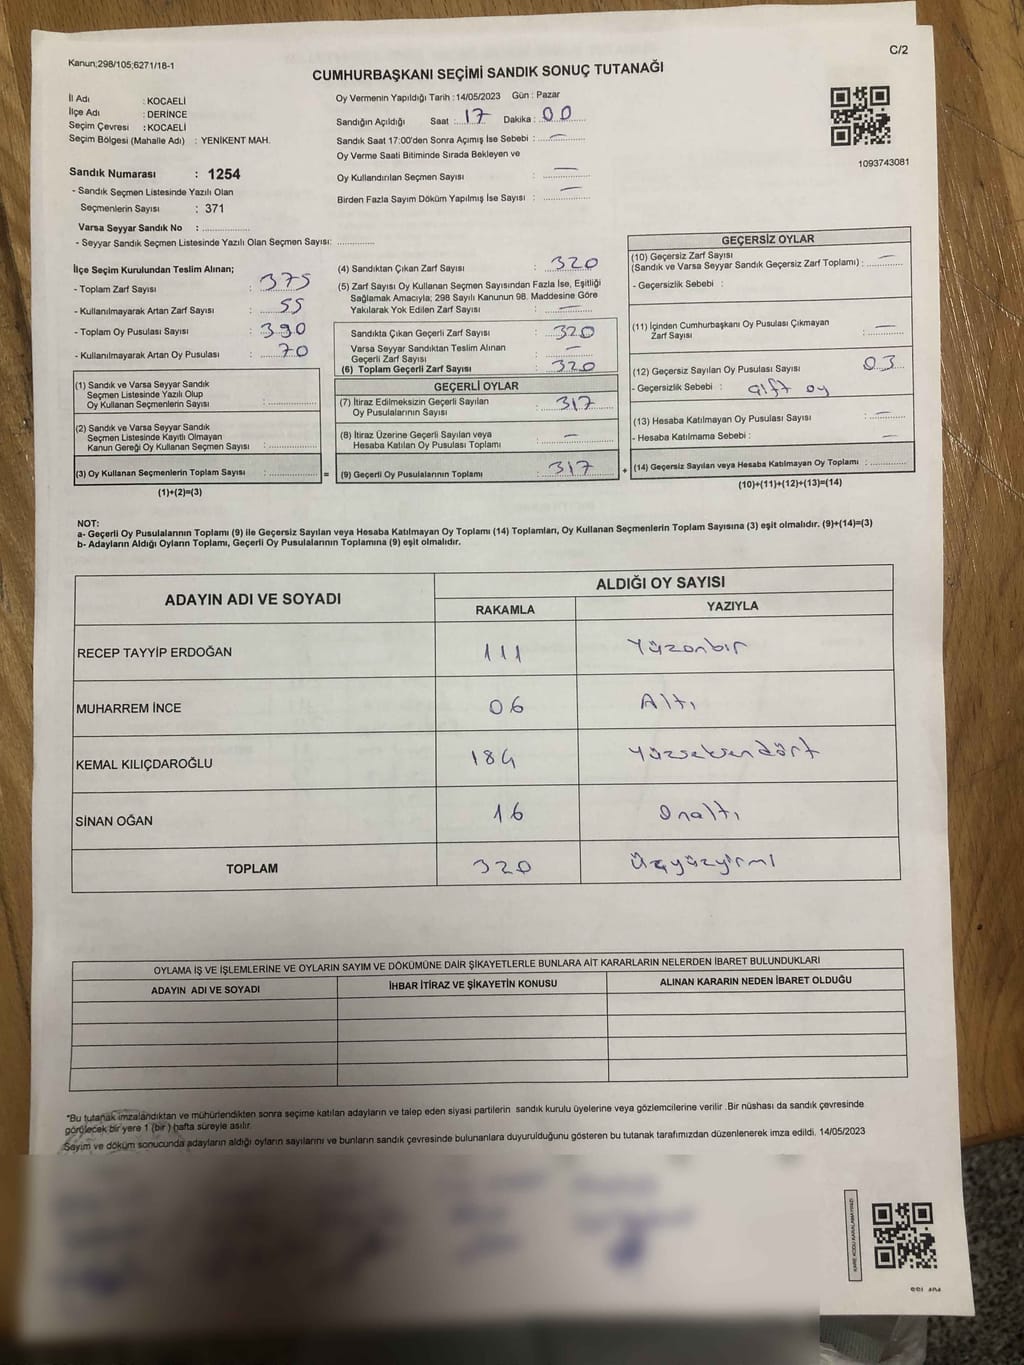 Kanun;298/105;6271/18-1
C/2
CUMHURBAŞKANI SEÇİMİ SANDIK SONUÇ TUTANAĞI
İl Adı : KOCAELİ
İlçe Adı : DERİNCE
Seçim Çevresi : KOCAELİ
Seçim Bölgesi (Mahalle Adı) : YENİKENT MAH.
Sandık Numarası : 1254
- Sandık Seçmen Listesinde Yazılı Olan
Seçmenlerin Sayısı : 371
Varsa Seyyar Sandık No : ....................
- Seyyar Sandık Seçmen Listesinde Yazılı Olan Seçmen Sayısı: ...............
Oy Vermenin Yapıldığı Tarih : 14/05/2023 Gün : Pazar
Sandığın Açıldığı Saat : 17 Dakika : 00
Sandık Saat 17:00'den Sonra Açımış İse Sebebi : —
Oy Verme Saati Bitiminde Sırada Bekleyen ve
Oy Kullandırılan Seçmen Sayısı : —
Birden Fazla Sayım Döküm Yapılmış İse Sayısı : —
1093743081
İlçe Seçim Kurulundan Teslim Alınan;
- Toplam Zarf Sayısı : 375
- Kullanılmayarak Artan Zarf Sayısı : 55
- Toplam Oy Pusulası Sayısı : 390
- Kullanılmayarak Artan Oy Pusulası : 70
(1) Sandık ve Varsa Seyyar Sandık
Seçmen Listesinde Yazılı Olup
Oy Kullanan Seçmenlerin Sayısı : ................
(2) Sandık ve Varsa Seyyar Sandık
Seçmen Listesinde Kayıtlı Olmayan
Kanun Gereği Oy Kullanan Seçmen Sayısı : ................
(3) Oy Kullanan Seçmenlerin Toplam Sayısı : ................ =
(1)+(2)=(3)
(4) Sandıktan Çıkan Zarf Sayısı : 320
(5) Zarf Sayısı Oy Kullanan Seçmen Sayısından Fazla İse, Eşitliği
Sağlamak Amacıyla; 298 Sayılı Kanunun 98. Maddesine Göre
Yakılarak Yok Edilen Zarf Sayısı : —
Sandıkta Çıkan Geçerli Zarf Sayısı : 320
Varsa Seyyar Sandıktan Teslim Alınan
Geçerli Zarf Sayısı : —
(6) Toplam Geçerli Zarf Sayısı : 320
GEÇERLİ OYLAR
(7) İtiraz Edilmeksizin Geçerli Sayılan
Oy Pusulalarının Sayısı : 317
(8) İtiraz Üzerine Geçerli Sayılan veya
Hesaba Katılan Oy Pusulası Toplamı : —
(9) Geçerli Oy Pusulalarının Toplamı : 317 +
GEÇERSİZ OYLAR
(10) Geçersiz Zarf Sayısı
(Sandık ve Varsa Seyyar Sandık Geçersiz Zarf Toplamı) : —
- Geçersizlik Sebebi :
(11) İçinden Cumhurbaşkanı Oy Pusulası Çıkmayan
Zarf Sayısı : —
(12) Geçersiz Sayılan Oy Pusulası Sayısı : 03
- Geçersizlik Sebebi : Çift oy
(13) Hesaba Katılmayan Oy Pusulası Sayısı : —
- Hesaba Katılmama Sebebi : —
(14) Geçersiz Sayılan veya Hesaba Katılmayan Oy Toplamı : ............
(10)+(11)+(12)+(13)=(14)
NOT:
a- Geçerli Oy Pusulalarının Toplamı (9) ile Geçersiz Sayılan veya Hesaba Katılmayan Oy Toplamı (14) Toplamları, Oy Kullanan Seçmenlerin Toplam Sayısına (3) eşit olmalıdır. (9)+(14)=(3)
b- Adayların Aldığı Oyların Toplamı, Geçerli Oy Pusulalarının Toplamına (9) eşit olmalıdır.
ADAYIN ADI VE SOYADI ALDIĞI OY SAYISI
RAKAMLA YAZIYLA
RECEP TAYYİP ERDOĞAN 111 Yüzonbir
MUHARREM İNCE 06 Altı
KEMAL KILIÇDAROĞLU 184 Yüzseksendört
SİNAN OĞAN 16 Onaltı
TOPLAM 320 Üçyüzyirmi
OYLAMA İŞ VE İŞLEMLERİNE VE OYLARIN SAYIM VE DÖKÜMÜNE DAİR ŞİKAYETLERLE BUNLARA AİT KARARLARIN NELERDEN İBARET BULUNDUKLARI
ADAYIN ADI VE SOYADI İHBAR İTİRAZ VE ŞİKAYETİN KONUSU ALINAN KARARIN NEDEN İBARET OLDUĞU
*Bu tutanak imzalandıktan ve mühürlendikten sonra seçime katılan adayların ve talep eden siyasi partilerin sandık kurulu üyelerine veya gözlemcilerine verilir .Bir nüshası da sandık çevresinde
görülecek bir yere 1 (bir ) hafta süreyle asılır.
Sayım ve döküm sonucunda adayların aldığı oyların sayılarını ve bunların sandık çevresinde bulunanlara duyurulduğunu gösteren bu tutanak tarafımızdan düzenlenerek imza edildi. 14/05/2023